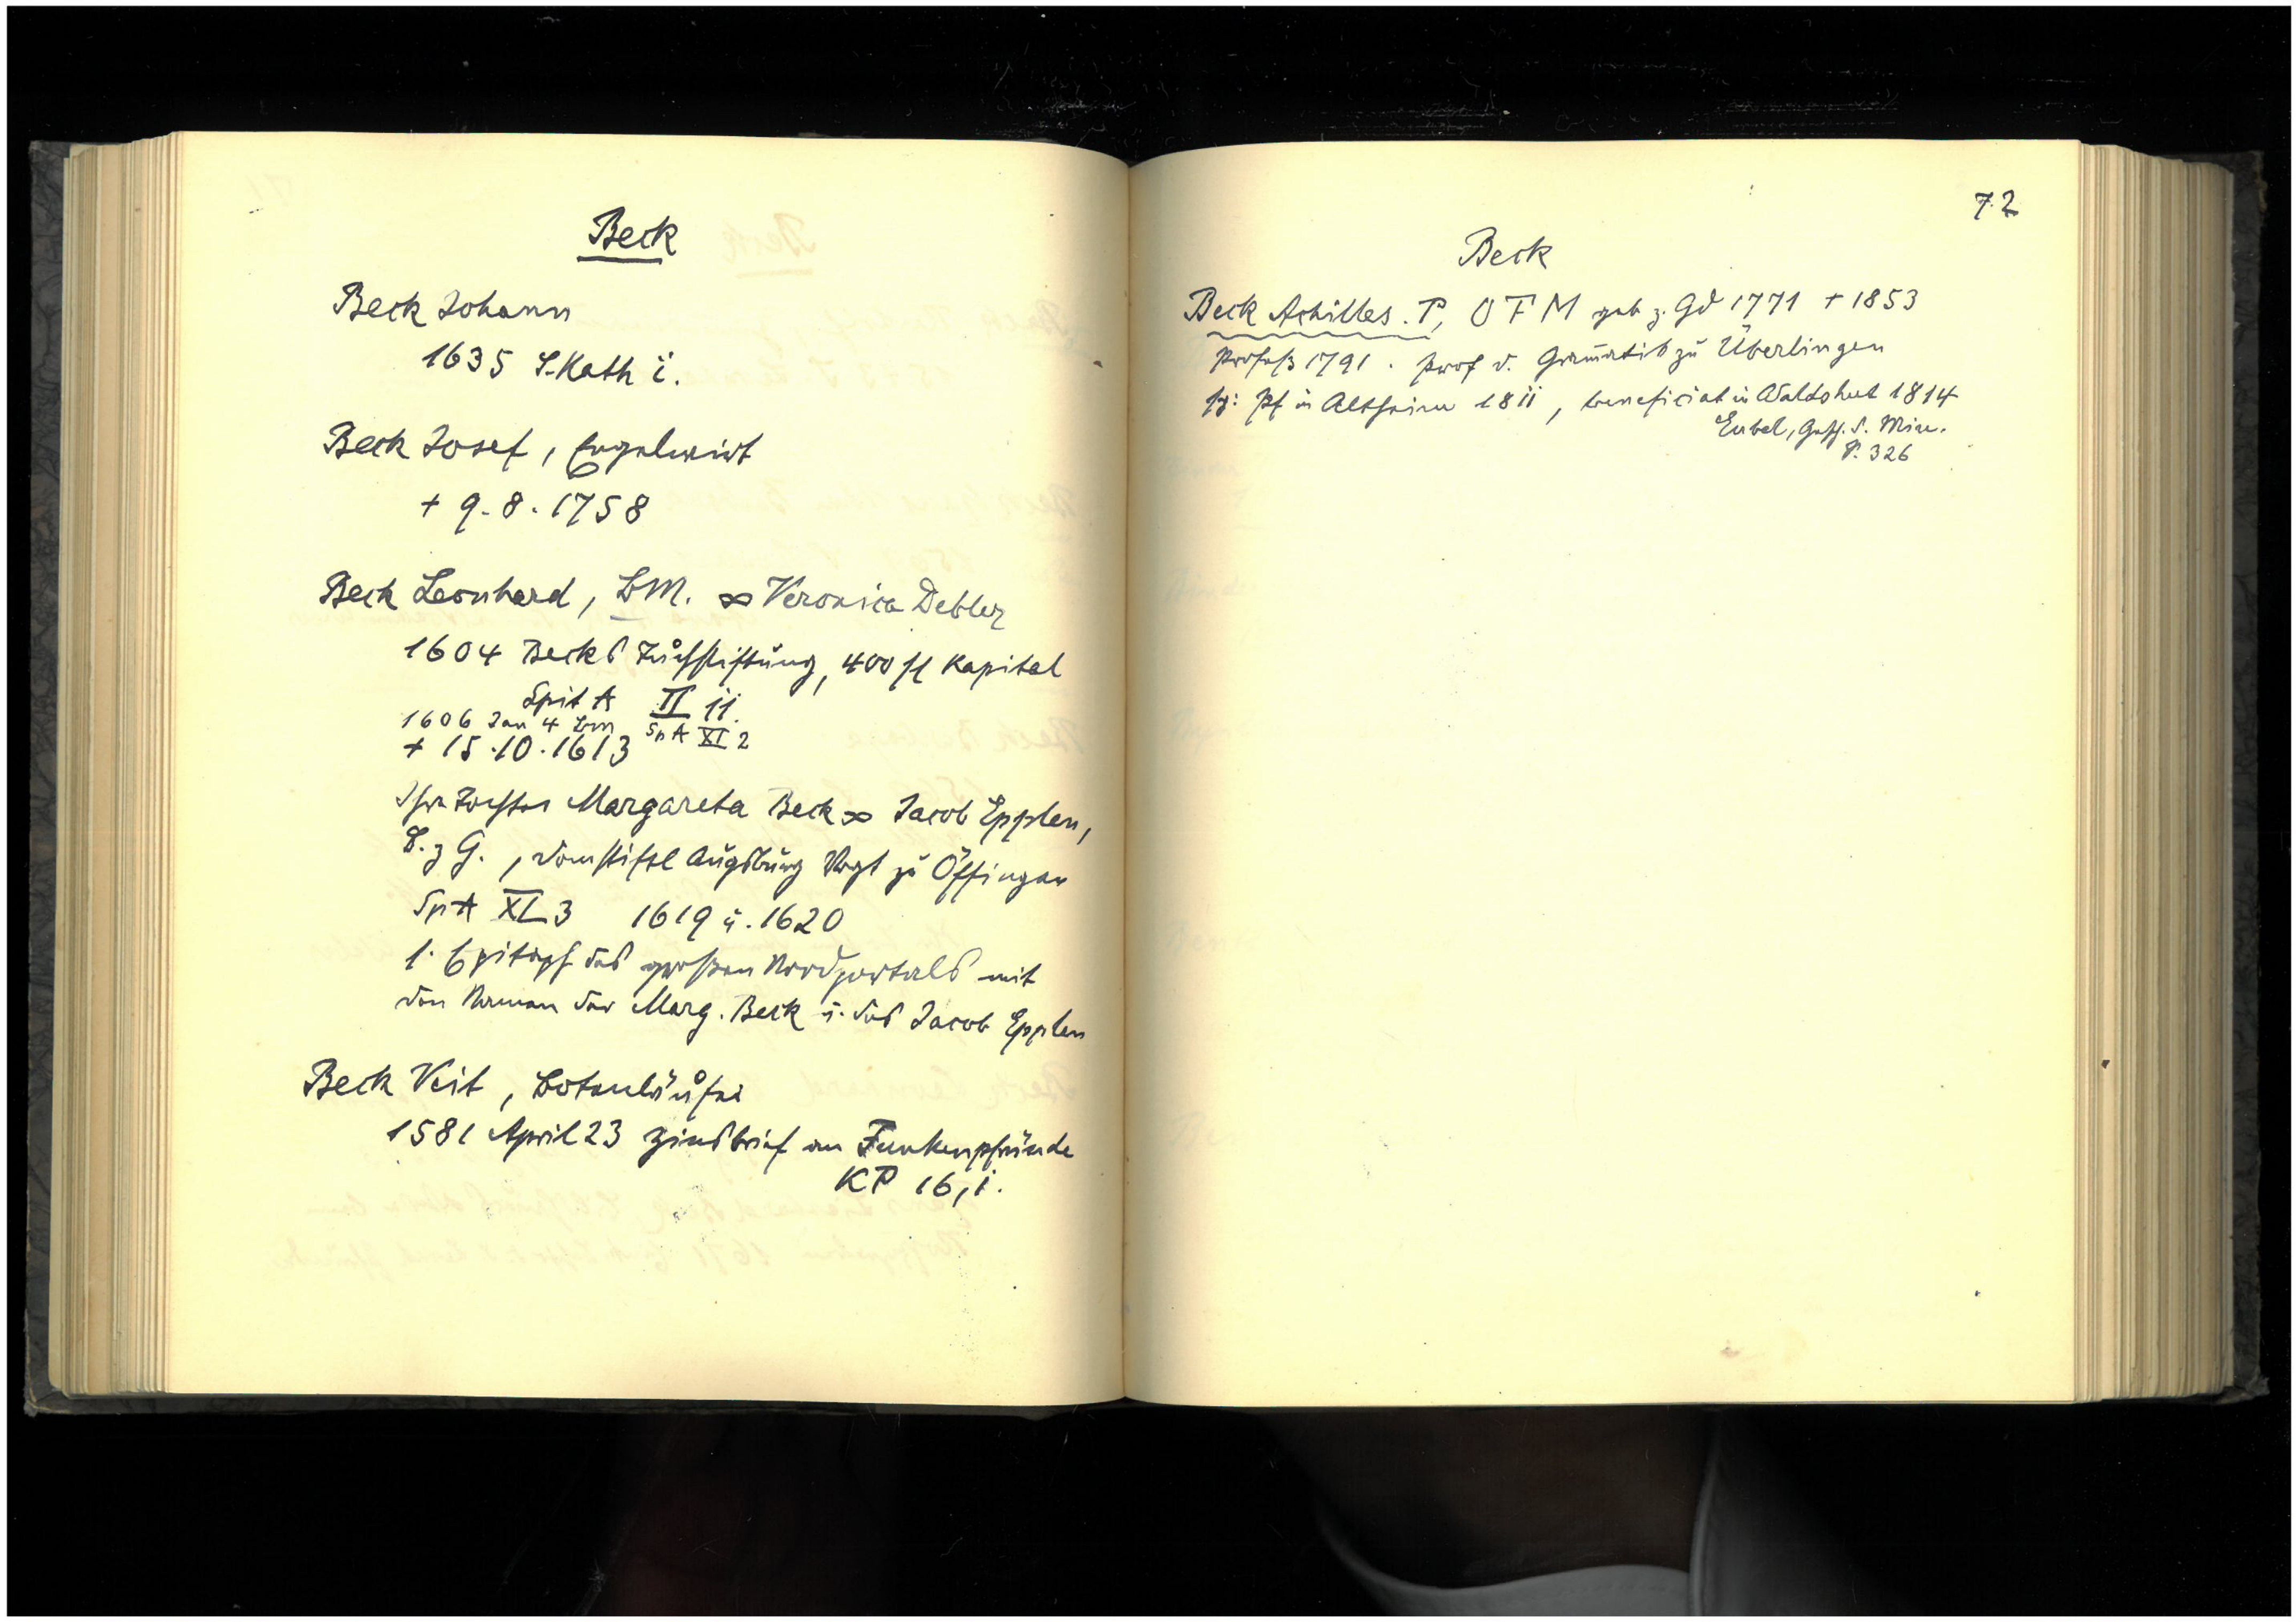 Beck
Beck Johann
1635 S. Kath i.
Beck Josef, Engelwirt
+ 9.8.1758
Beck Leonhard, BM. ∞ Veronica Debler
1604 Becks Tuchstiftung, 400 fl Kapital
Spit A II ii.
1606 Jan 4 Bm SpA XI 2
+ 15.10.1613
Ihre Tochter Margareta Beck ∞ Jacob Epplen,
B. z G., domstiftl Augsburg Vogt zu Öffingen
SpA XI 3 1619 u. 1620
1. Epitaph des großen Nordportals mit
den Namen der Marg. Beck u. des Jacob Epplen
Beck Veit, Botenläufer
1581 April 23 Zinsbrief an Funkenpfründe
KP 16, i.
72
Beck
Beck Achilles. P, OFM geb z. Gd 1771 + 1853
Profeß 1791. Prof d. Gram̄atik zu Überlingen
Pf in Altheim 18ii, beneficiat in Waldshut 1814
Eubel, Gesch. d. Min.
S. 326